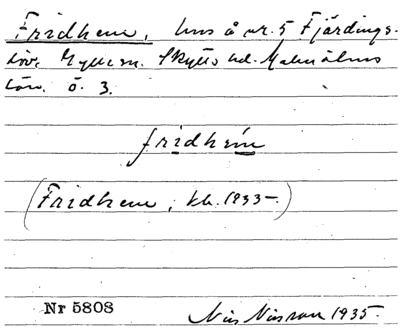 Fridhem, hus å nr. 5 Fjärdings-
löv. Gylle sn. Skytts hd. Malmöhus
län. ö. 3.
fridhem
(Fridhem, kb. 1933-.)
Nr 5808
Nils Nilsson 1935.